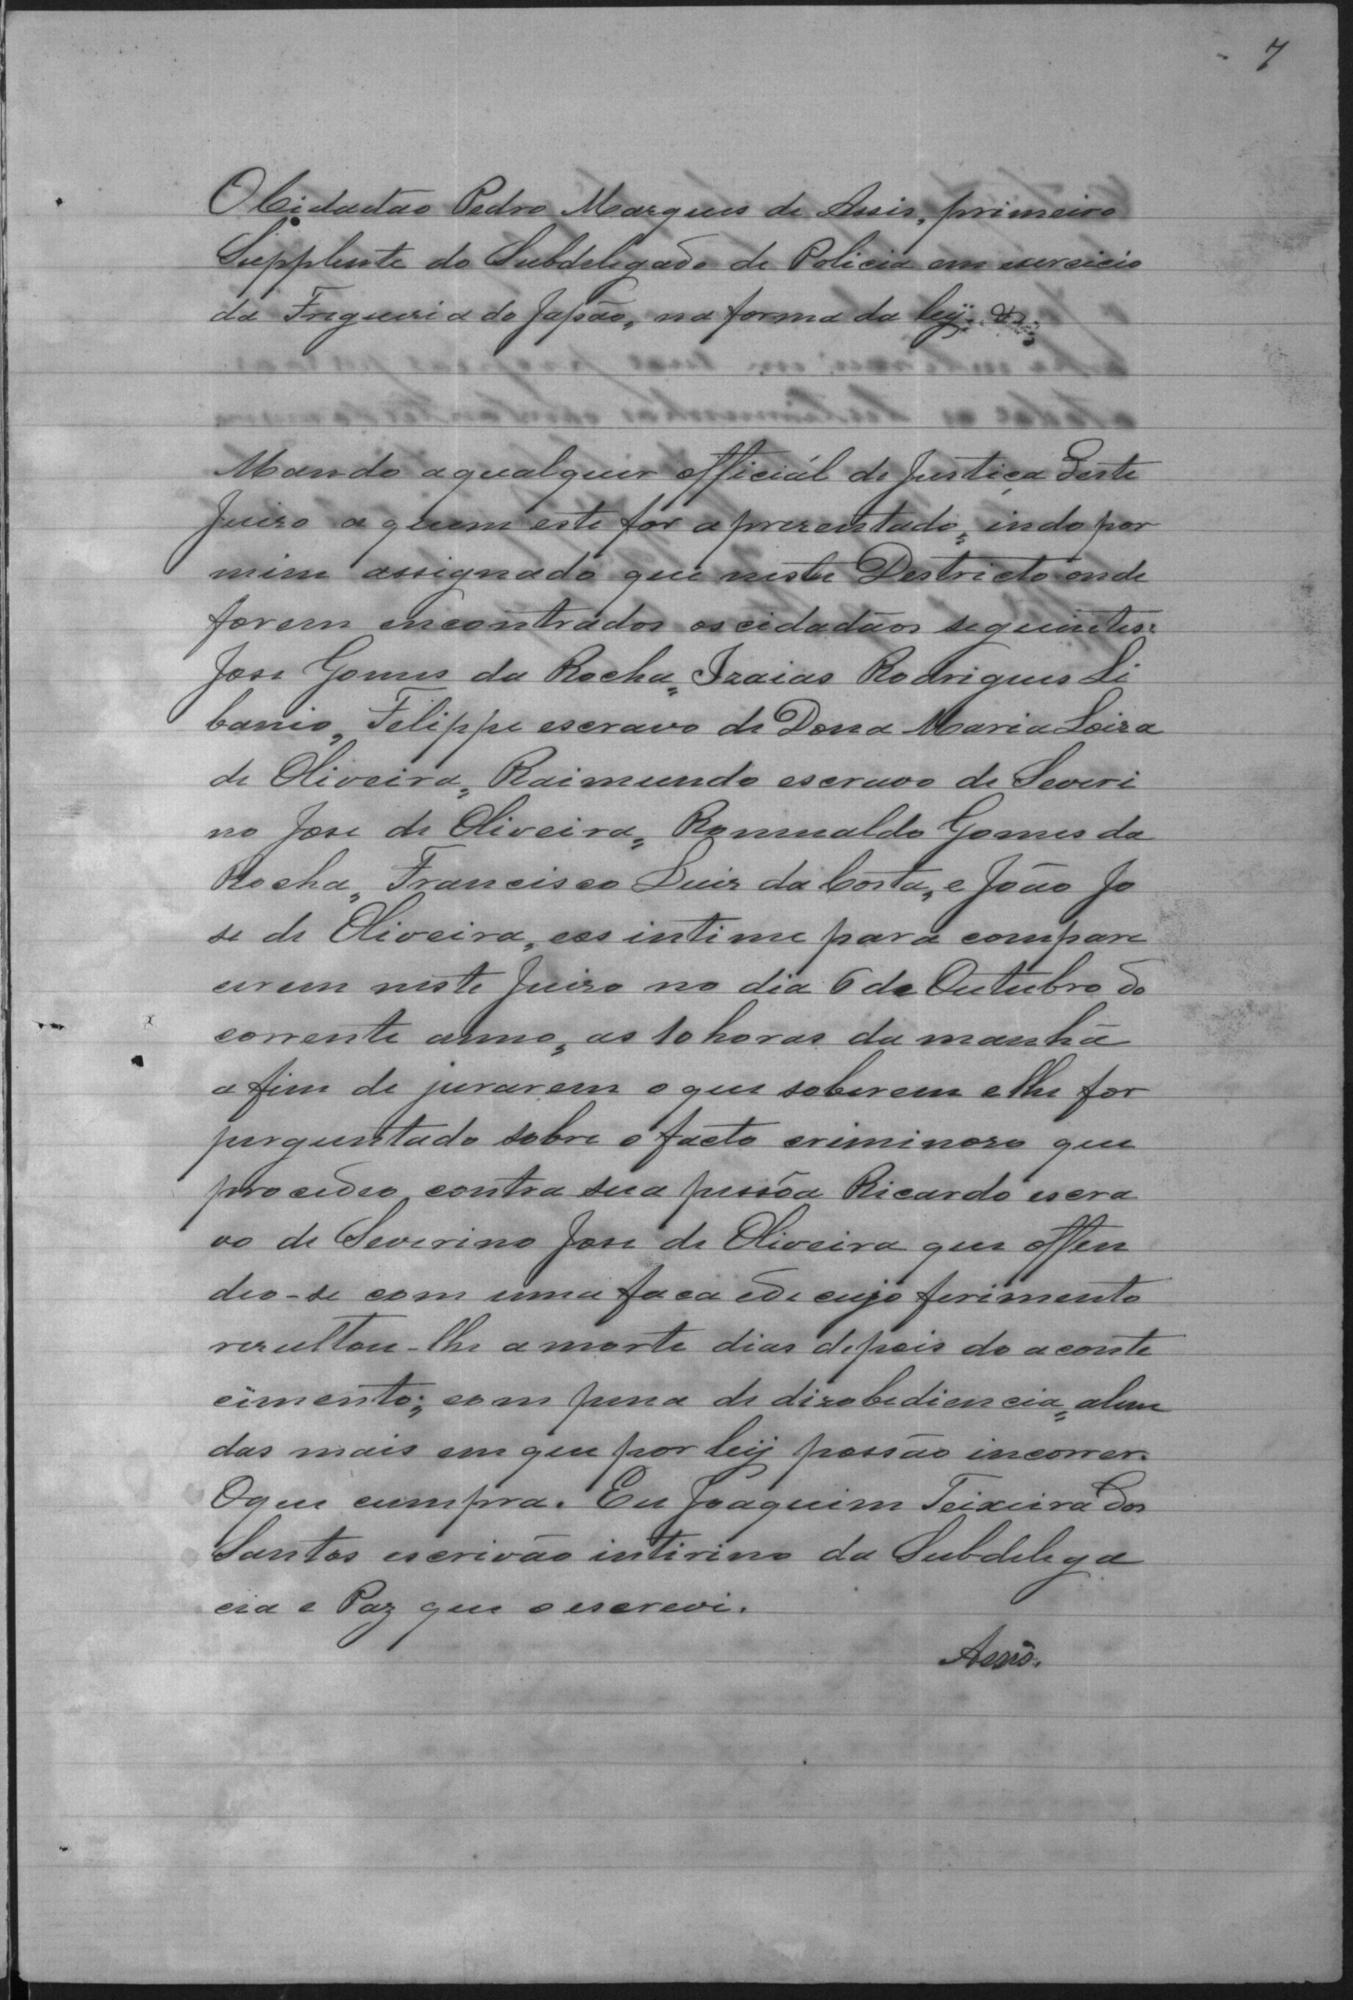 7
O Cidadão Pedro Marques de Assis, primeiro
Supplente do Subdelegado de Policia em exercicio
da Freguezia do Japão, na forma da leÿ. &;
Mando a qualquer official de Justiça deste
Juizo a quem este for aprezentado, indo por
mim assignado que neste Destricto onde
forem encontrados os cidadãos seguintes:
Jose Gomes da Rocha, Izaias Rodrigues Li
banio, Filippe escravo de Dona Maria Loiza
de Oliveira, Raimundo escravo de Severi
no Jose de Oliveira, Romualdo Gomes da
Rocha, Francisco Luiz da Costa, e João Jo
se de Oliveira, eos intime para compare
cerem neste Juizo no dia 6 de Outubro do
corrente anno, as 10 horas da manhã
a fim de jurarem o que soberem e lhe for
perguntado sobre o facto criminozo que
procedeo contra sua pessôa Ricardo escra
vo de Severino Jose de Oliveira que offen
deo-se com uma faca e de cujo ferimento
rezultou-lhe a morte dias depois do aconte
cimento; com pena de dizobediencia, alem
das mais em que por leÿ possão incorrer.
O que cumpra. Eu Joaquim Teixeira dos
Santos escrivão intirino da Subdelega
cia e Paz que o escrevi.
Assis.